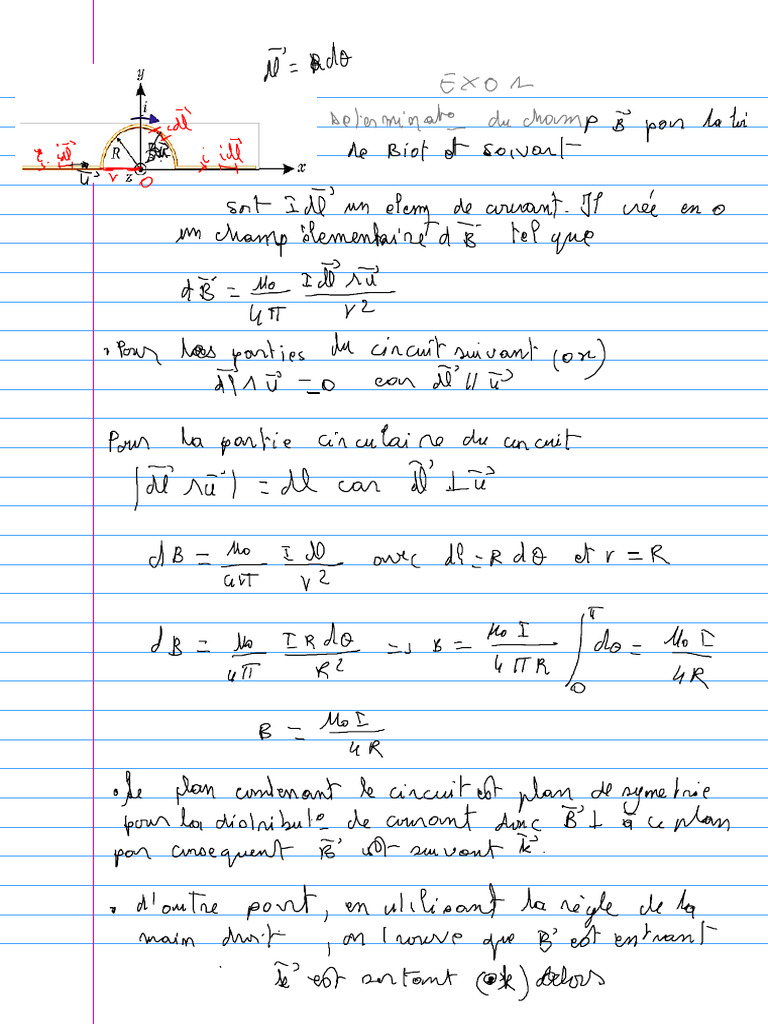 dl⃗ = R dθ
EXO 1
Determinat° du champ B⃗ par la loi
de Biot et Savart
y
i
dl⃗
R
i dl⃗
i
i dl⃗
x
u⃗
r
z
O
soit I dl⃗ un elem de courant. Il crée en O
un champ élementaire d B⃗ tel que
dB⃗ = μ₀/4π I dl⃗ ∧ u⃗ / r²
• Pour les parties du circuit suivant (ox)
dl⃗ ∧ u⃗ = 0 car dl⃗ // u⃗
Pour la partie circulaire du circuit
|dl⃗ ∧ u⃗| = dl car dl⃗ ⊥ u⃗
dB = μ₀/4π I dl / r² avec dl = R dθ et r = R
dB = μ₀/4π I R dθ / R² ⇒ B = μ₀ I / 4πR ∫₀^π dθ = μ₀ I / 4R
B = μ₀ I / 4R
• Le plan contenant le circuit est plan de symetrie
pour la distribut° de courant donc B⃗ ⊥ à ce plan
par consequent B⃗ est suivant k⃗.
• d'autre part, en utilisant la règle de la
main droit, on trouve que B⃗ est entrant
k⃗ est sortant ( ) alors